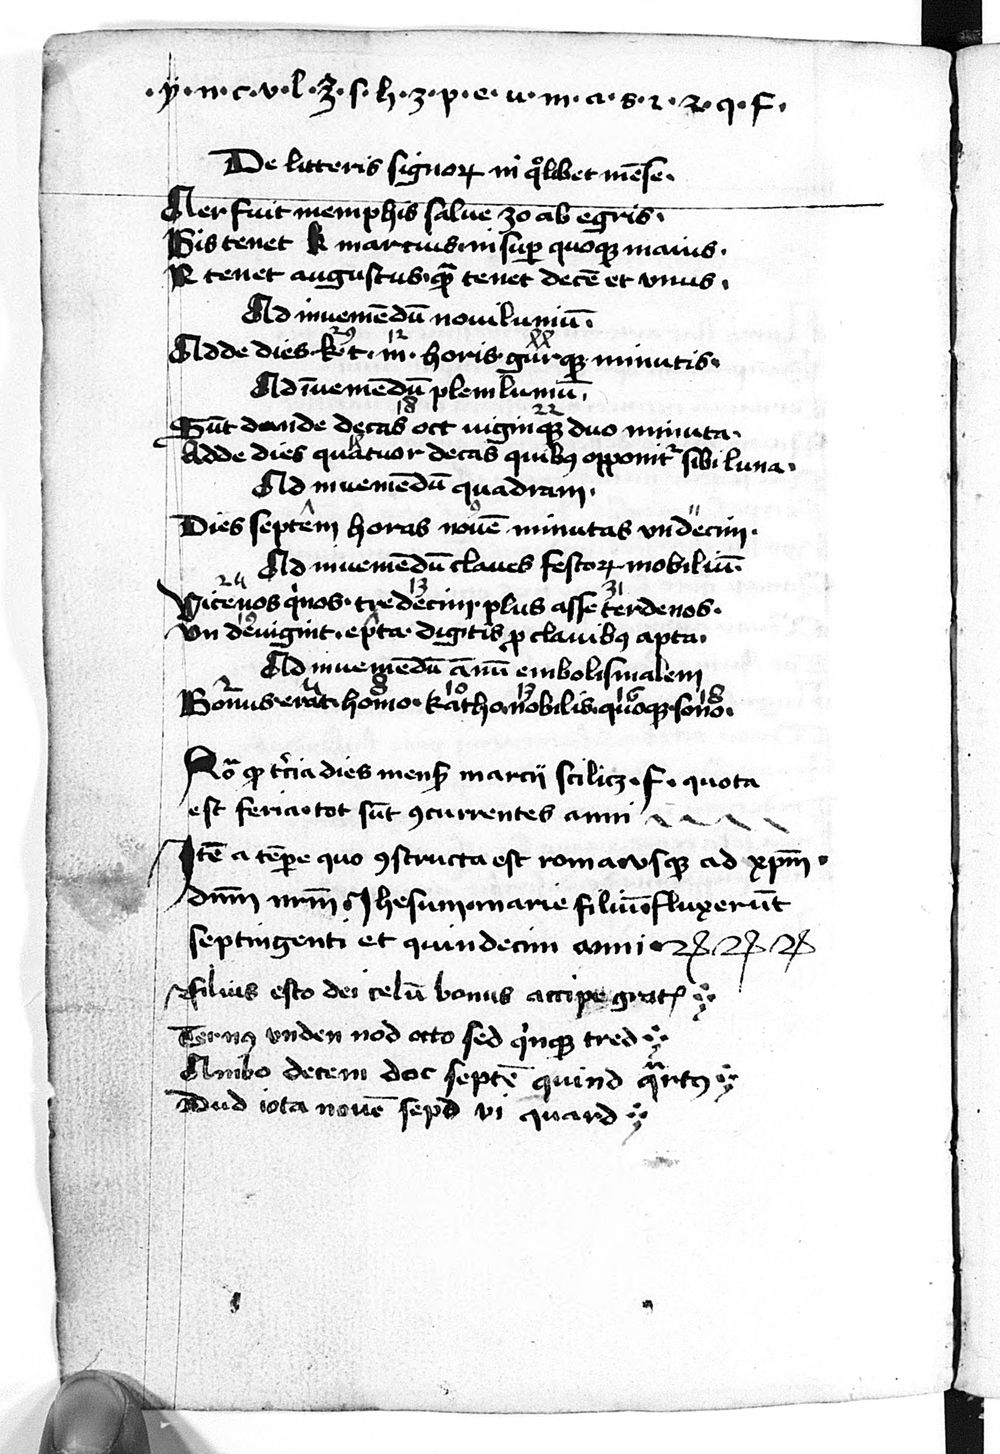 ·y·n·c·v·l·ʒ·s·h·z·p·e·u·m·a·s·r·ꝛ·q·f·
De litteris signoꝝ in qͦlibet mēse·
Aer fuit memphis salue zo ab egris·
Bis tenet k marcius·insuꝑ quoqꝫ maius·
R tenet augustus· tenet decē et vnus·
Ad inueniēdū nouiluniū·
29 12 XX
Adde dies·k͛t·m·horis·gurqꝫ minutis·
Ad īueniēdū pleniluniū·
18 22
Sūt deinde decas oct uiginqꝫ duo minuta·
4
Adde dies quatuor decas quibꝯ opponit᷑ sibi luna·
Ad inueniēdū quadram·
Λ 9 11
Dies septem horas nouē minutas vndecim·
Ad inueniēdū claues festoꝝ mobiliū·
24 13 31
Vicenos q'nos·tredecim·plus asse terdenos·
19 Λ
Vn deuigint·epta·digitis ꝓ clauibꝯ apta·
Ad inueniēdū ānū embolismalem
2 4 8 10 13 16 18
Bonus·erat·homo·katho·nobilis·quoqꝫ·sono·
Nōͣ tercia dies mens marcii scilicꝫ·F·quota
est feria·tot sūt ꝯcurrentes anni
Itē a tēꝑe quo ꝯstructa est roma vsqꝫ ad xpm̄·
dnm̄ nrm̄ Jhesum·marie filiū·fluxerūt
septingenti et quindecim anni·
Filius esto dei celū bonus accipe grat
Ternꝯ vnden nod octo sed q'nqꝫ tred
Ambo decem doc septē quind qͣrtꝯ
Dud iota nouē sepd vi quard